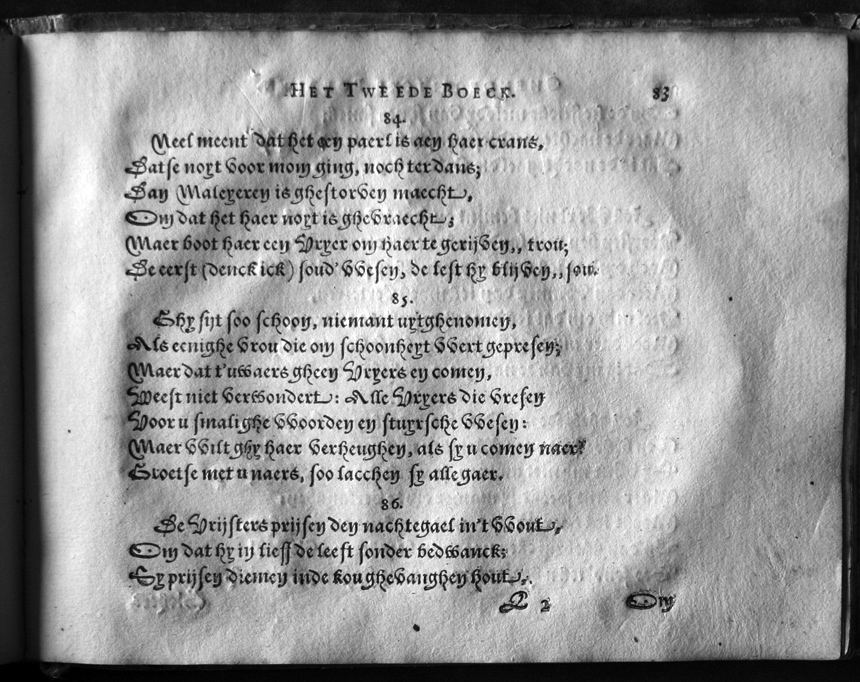 HET TWEEDE BOECK. 83
84.
Neel meent dat het aen paerl is aen haer crans,
Datse noyt voor mom ging, noch ter dans;
Dan Maleyeren is ghestorven maecht,
Om dat het haer noyt is ghevraecht;
Maer boot haer een Vryer om haer te gerijven,, trou;
De eerst (denck ick) soud' VVesen, de lest hy blijven,, sou.
85.
Ghy sijt soo schoon, niemant uytghenomen,
Als eenighe vrou die om schoonheyt VVert gepresen;
Maer dat t'uwaers gheen Vryers en comen,
Weest niet verwondert: Alle Vryers die vresen
Voor u smalighe VVoorden en stuyrsche VVesen:
Maer VVilt ghy haer verheughen, als sy u comen naer?
Groetse met u naers, soo lacchen sy alle gaer.
86.
De Vrijsters prijsen den nachtegael in't VVout,
Om dat hy in lieff de leeft sonder bedwanck;
Sy prijsen diemen inde kou ghevanghen hout,
L 2 Om